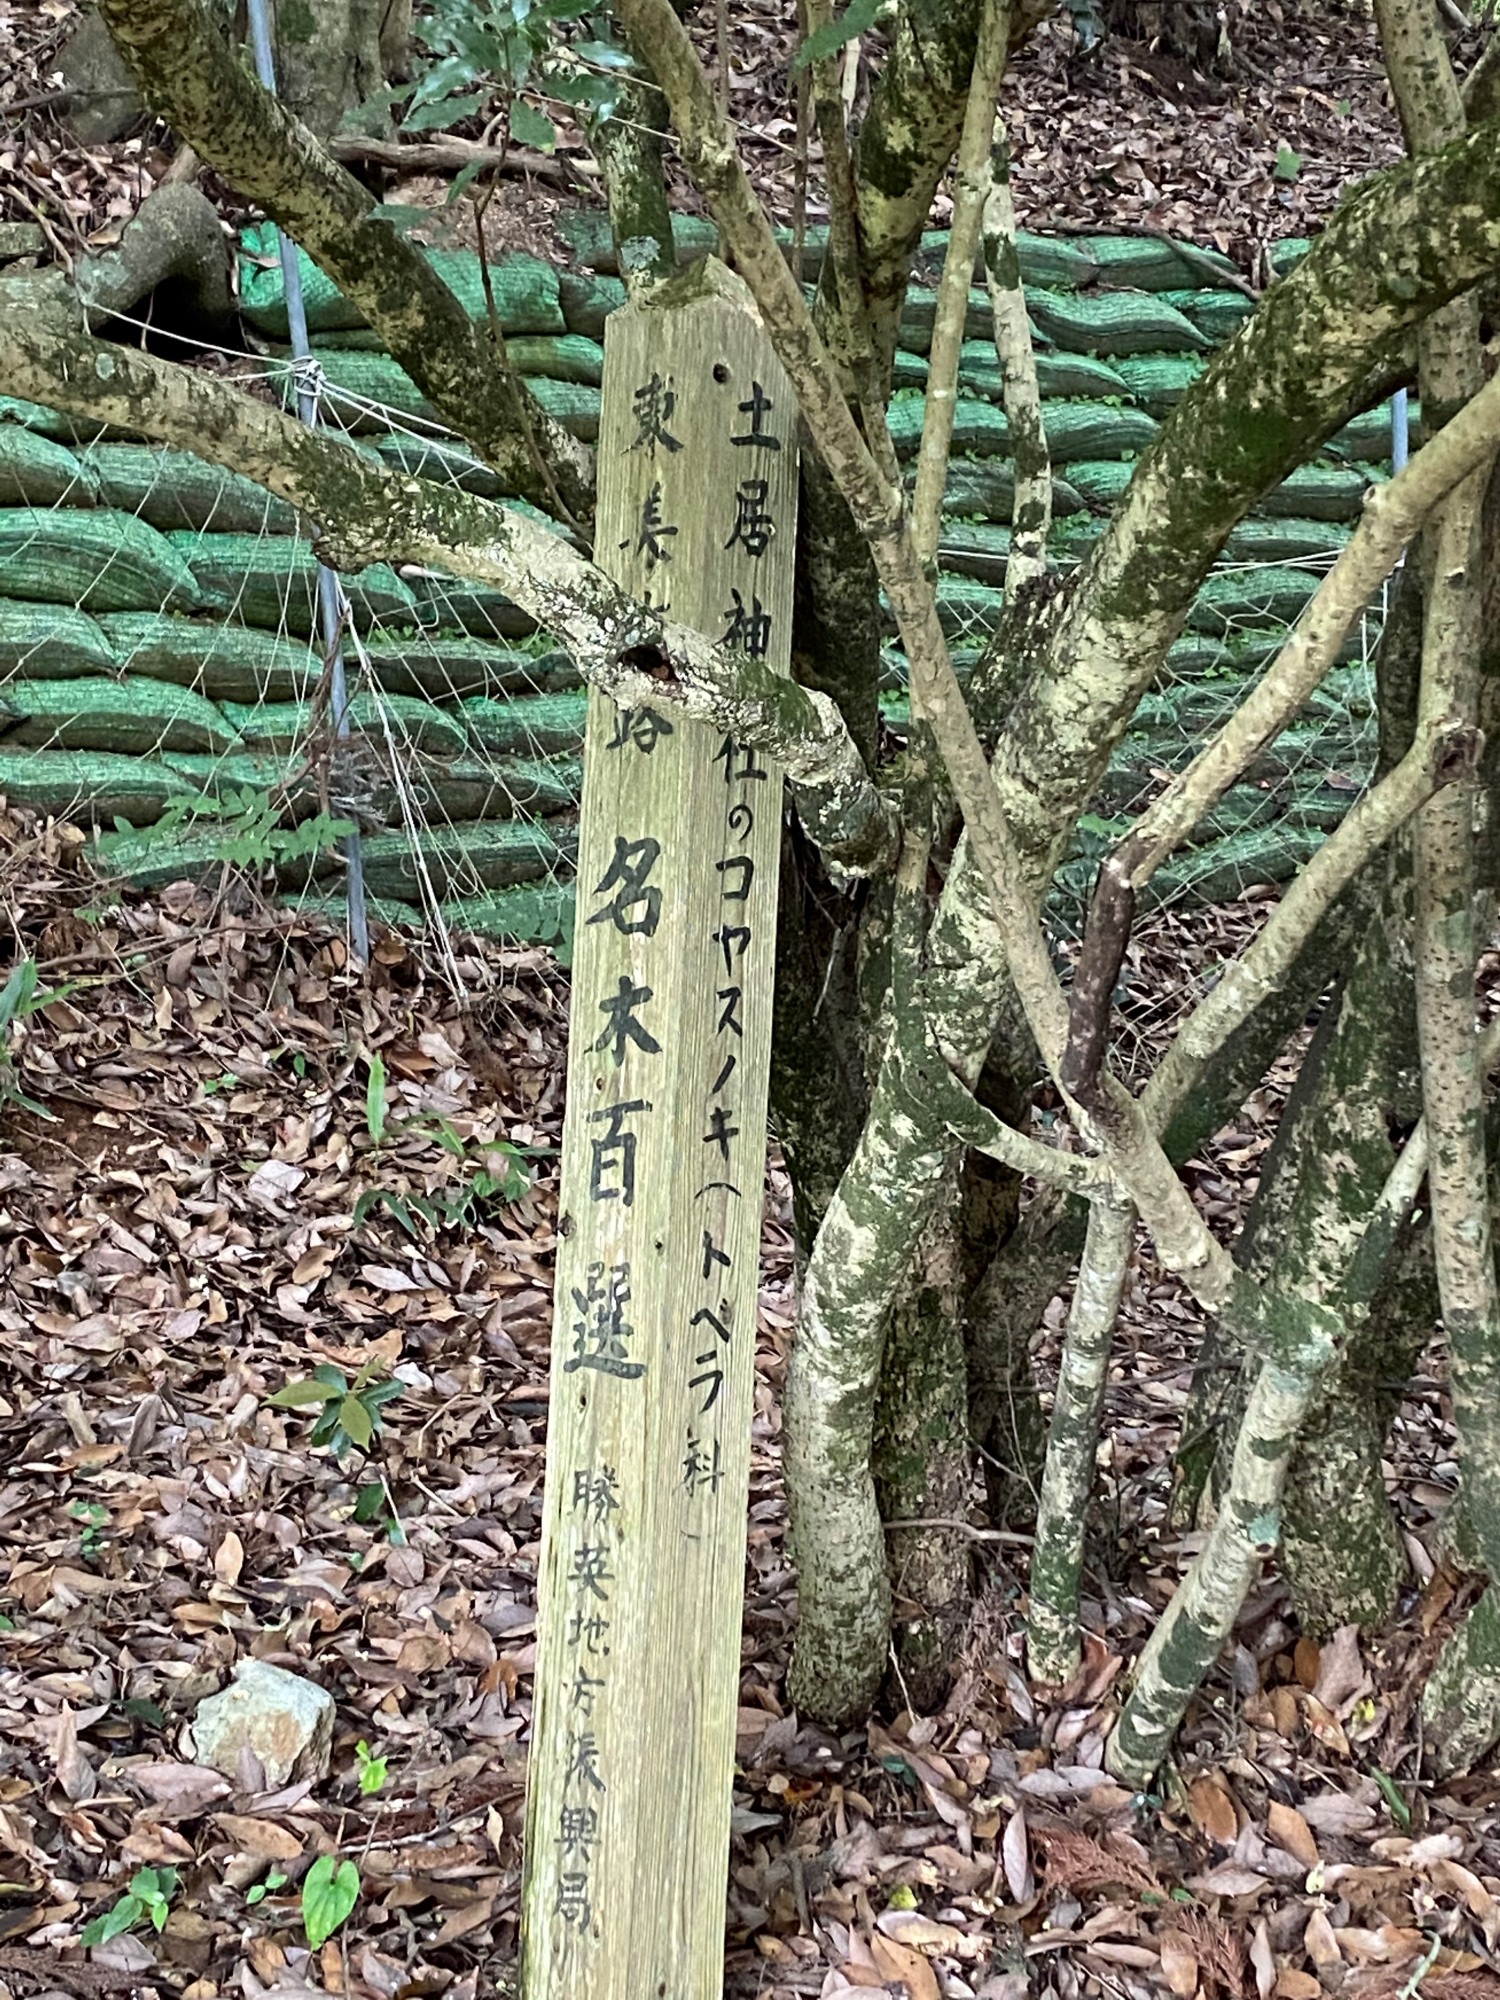 土居神社のコヤスノキ(トベラ科)
東美 路 名木百選 勝英地方振興局